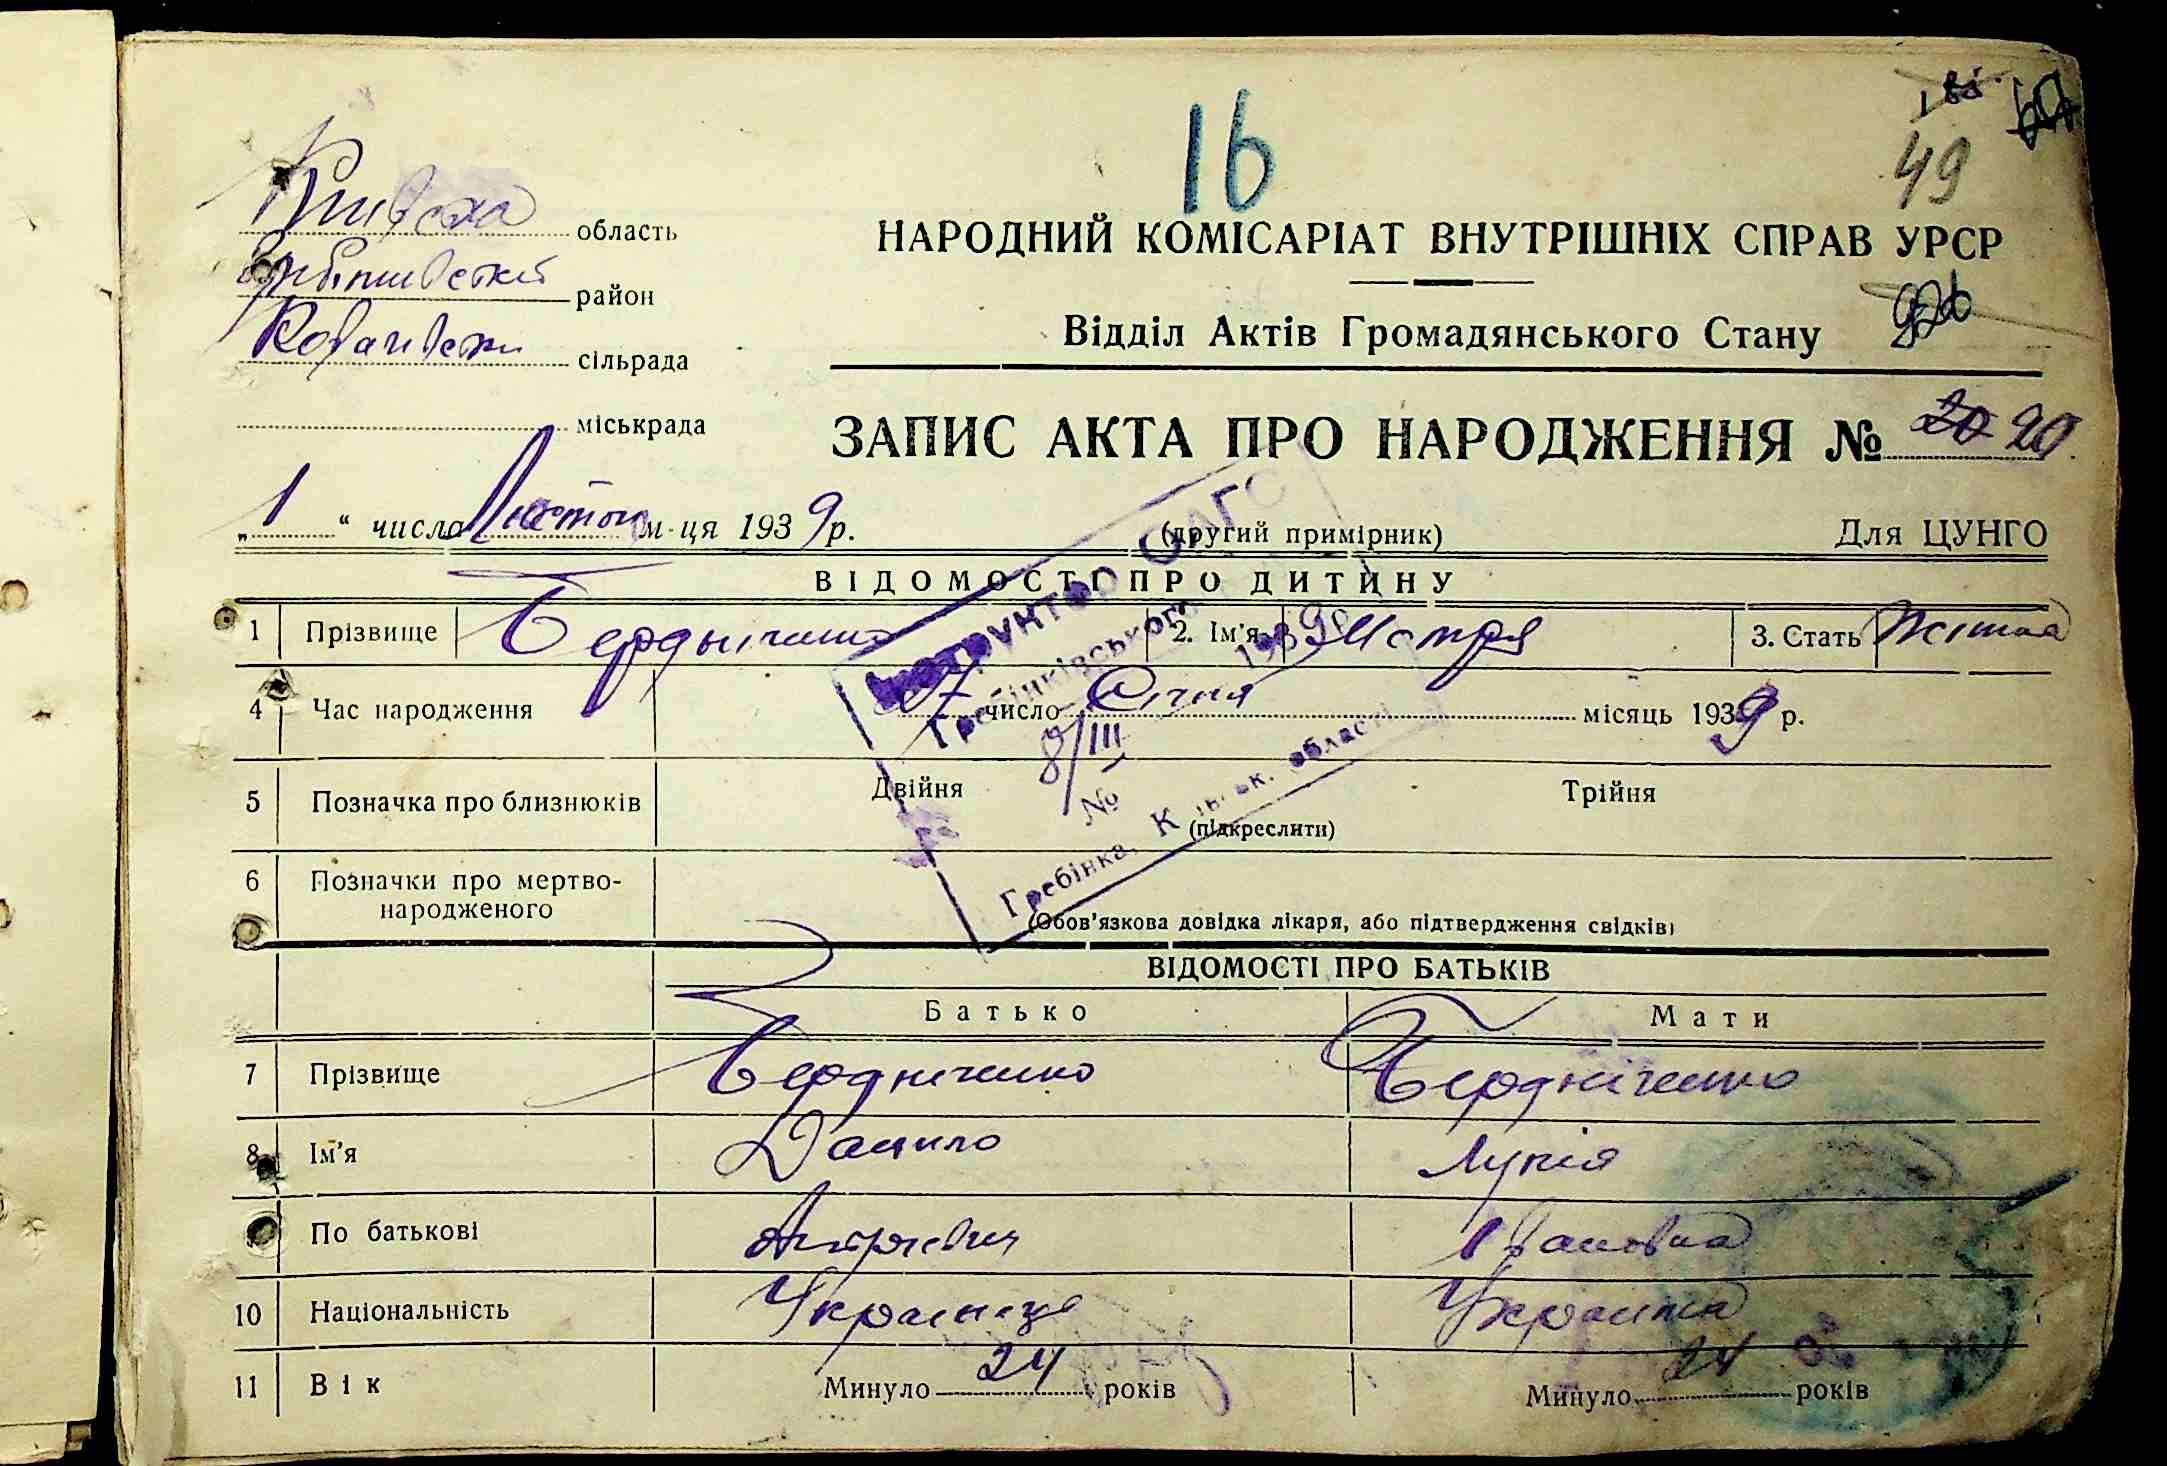 16
49
Київська область
район
сільрада
міськрада
НАРОДНИЙ КОМІСАРІАТ ВНУТРІШНІХ СПРАВ УРСР
Відділ Актів Громадянського Стану
926
ЗАПИС АКТА ПРО НАРОДЖЕННЯ № 20 20
„ 1 “ числа м-ця 1939 р.
(другий примірник)
Для ЦУНГО
ВІДОМОСТІ ПРО ДИТИНУ
1 Прізвище 2. Ім'я 3. Стать Жіноча
4 Час народження 27 число Січня місяць 1939 р.
5 Позначка про близнюків Двійня Трійня
(підкреслити)
6 Позначки про мертво-
народженого
(Обов'язкова довідка лікаря, або підтвердження свідків)
Інструктор ОАГС
Гребінківського
193 9
8/III
№
Гребінка, Київськ. області
ВІДОМОСТІ ПРО БАТЬКІВ
Батько Мати
7 Прізвище Бердніченко Бердніченко
8 Ім'я Данило
По батькові Івановна
10 Національність Українец Українка
11 Вік Минуло 24 років Минуло 24 років